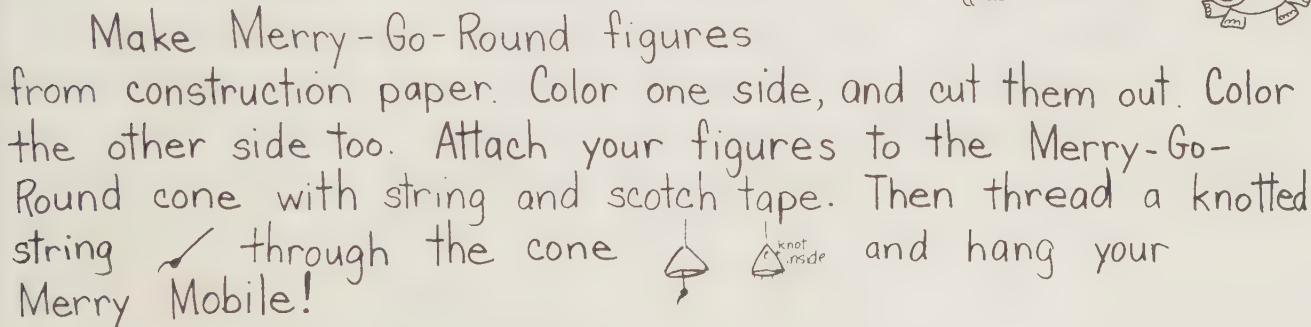 Make Merry-Go-Round figures
from construction paper. Color one side, and cut them out. Color
the other side too. Attach your figures to the Merry-Go-
Round cone with string and scotch tape. Then thread a knotted
string through the cone knot inside and hang your
Merry Mobile!